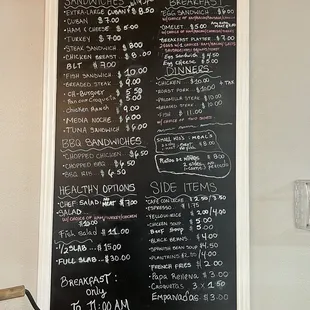 SANDWICHES
EXTRA-LARGE CUBAN $8.50
CUBAN $7.00
HAM & CHEESE $5.00
TURKEY $7.00
STEAK SANDWICH $8.00
CHICKEN BREAST $8.00
BLT $7.00
FISH SANDWICH $10.00
BREADED STEAK $9.00
CH-BURGUER $5.50
Pan con Croqueta $5.00
Chicken Ranch $9.00
MEDIA NOCHE $6.00
TUNA SANDWICH $6.00
BBQ SANDWICHES
CHOPPED CHICKEN $6.50
CHOPPED BBQ $6.50
BBQ RIB $6.50
HEALTHY OPTIONS
CHEF SALAD NO MEAT $7.00
SALAD
W/CHOICE OF HAM/TURKEY/CHICKEN
$10.00
Fish salad $11.00
1/2 SLAB $15.00
FULL SLAB $30.00
BREAKFAST:
only
TO 11:00 AM
BREAKFAST
EGG SANDWICH $6.00
OMELET $5.00
BREAKFAST PLATTER $7.00
Egg Sandwich $4.50
Egg Cheese $5.00
DINNERS
CHICKEN $10.00
ROAST PORK $10.00
PALOMILLA STEAK $10.00
BREADED STEAK $10.00
FISH $11.00
W/CHOICE OF TWO SIDES
SMALL KIDS MEALS
SIDE ITEMS
CAFE CON LECHE $2.50/3.50
ESPRESSO $1.75
YELLOW RICE $2.00/4.00
CHICKEN SOUP $5.00
Beef Soup $5.00
BLACK BEANS $4.00
SPANISH BEAN SOUP $4.50
PLANTAINS $2.50/4.00
FRENCH FRIES $2.00
Papa Rellena $3.00
Croquetas 3 x $1.50
Empanadas $3.00